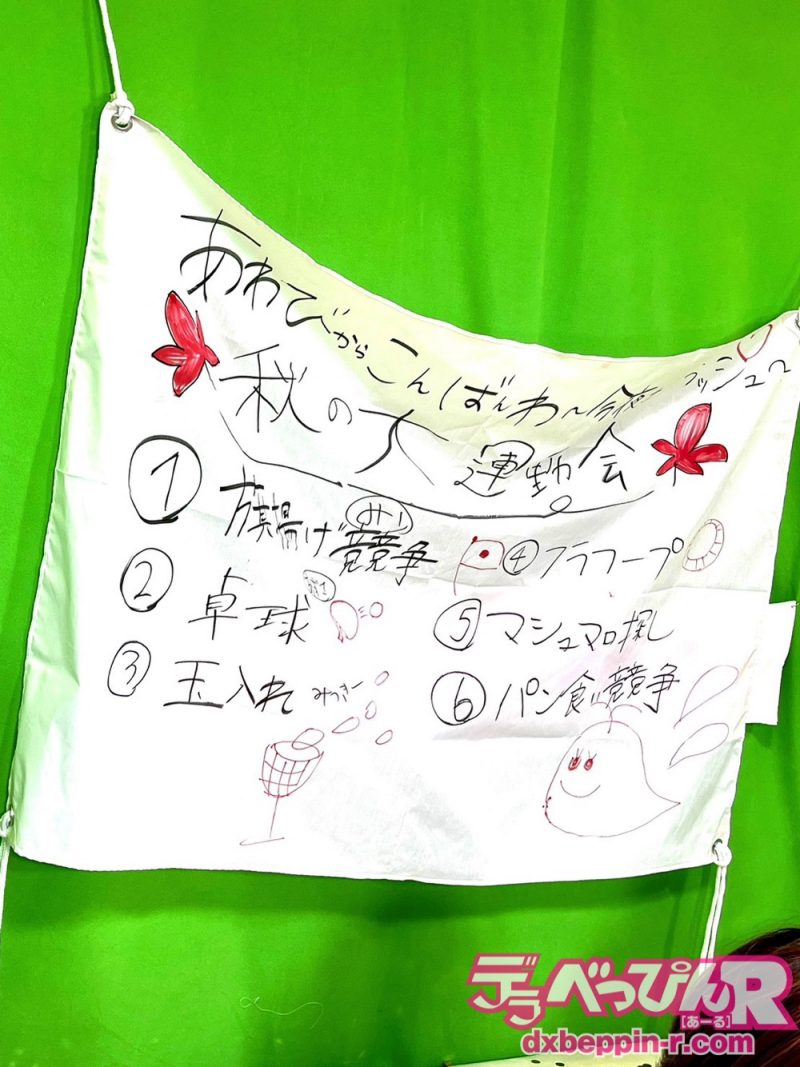 あわびからこんばんわ〜今夜プッシュ〜
秋の大運動会
① 旗揚げ競争
② 卓球
③ 玉入れ みっきー
④ フラフープ
⑤ マシュマロ探し
⑥ パン食い競争
デラべっぴんR
[あーる]
dxbeppin-r.com